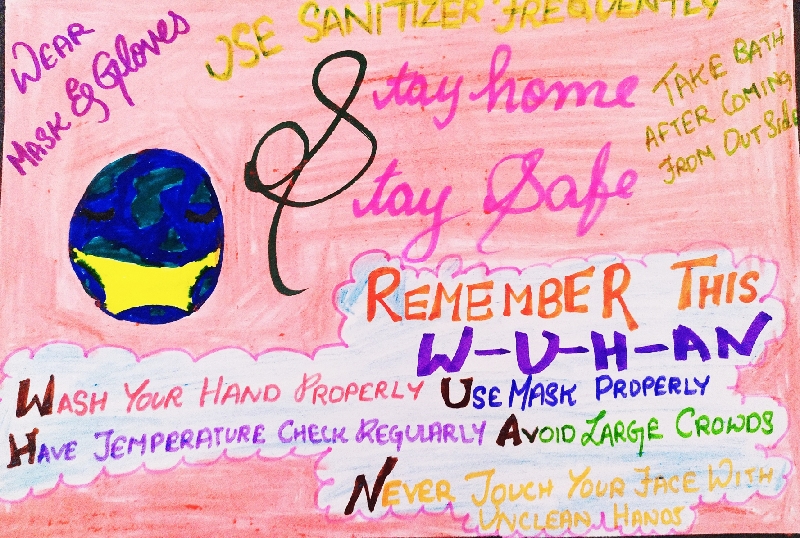 WEAR
MASK & Gloves
USE SANITIZER FREQUENTLY
Stay home
Stay Safe
TAKE BATH
AFTER COMING
FROM OUT Side
REMEMBER THIS
W-U-H-AN
WASH YOUR HAND PROPERLY USE MASK PROPERLY
HAVE TEMPERATURE CHECK REGULARLY AVOID LARGE CROWDS
NEVER TOUCH YOUR FACE WITH
UNCLEAN HANDS